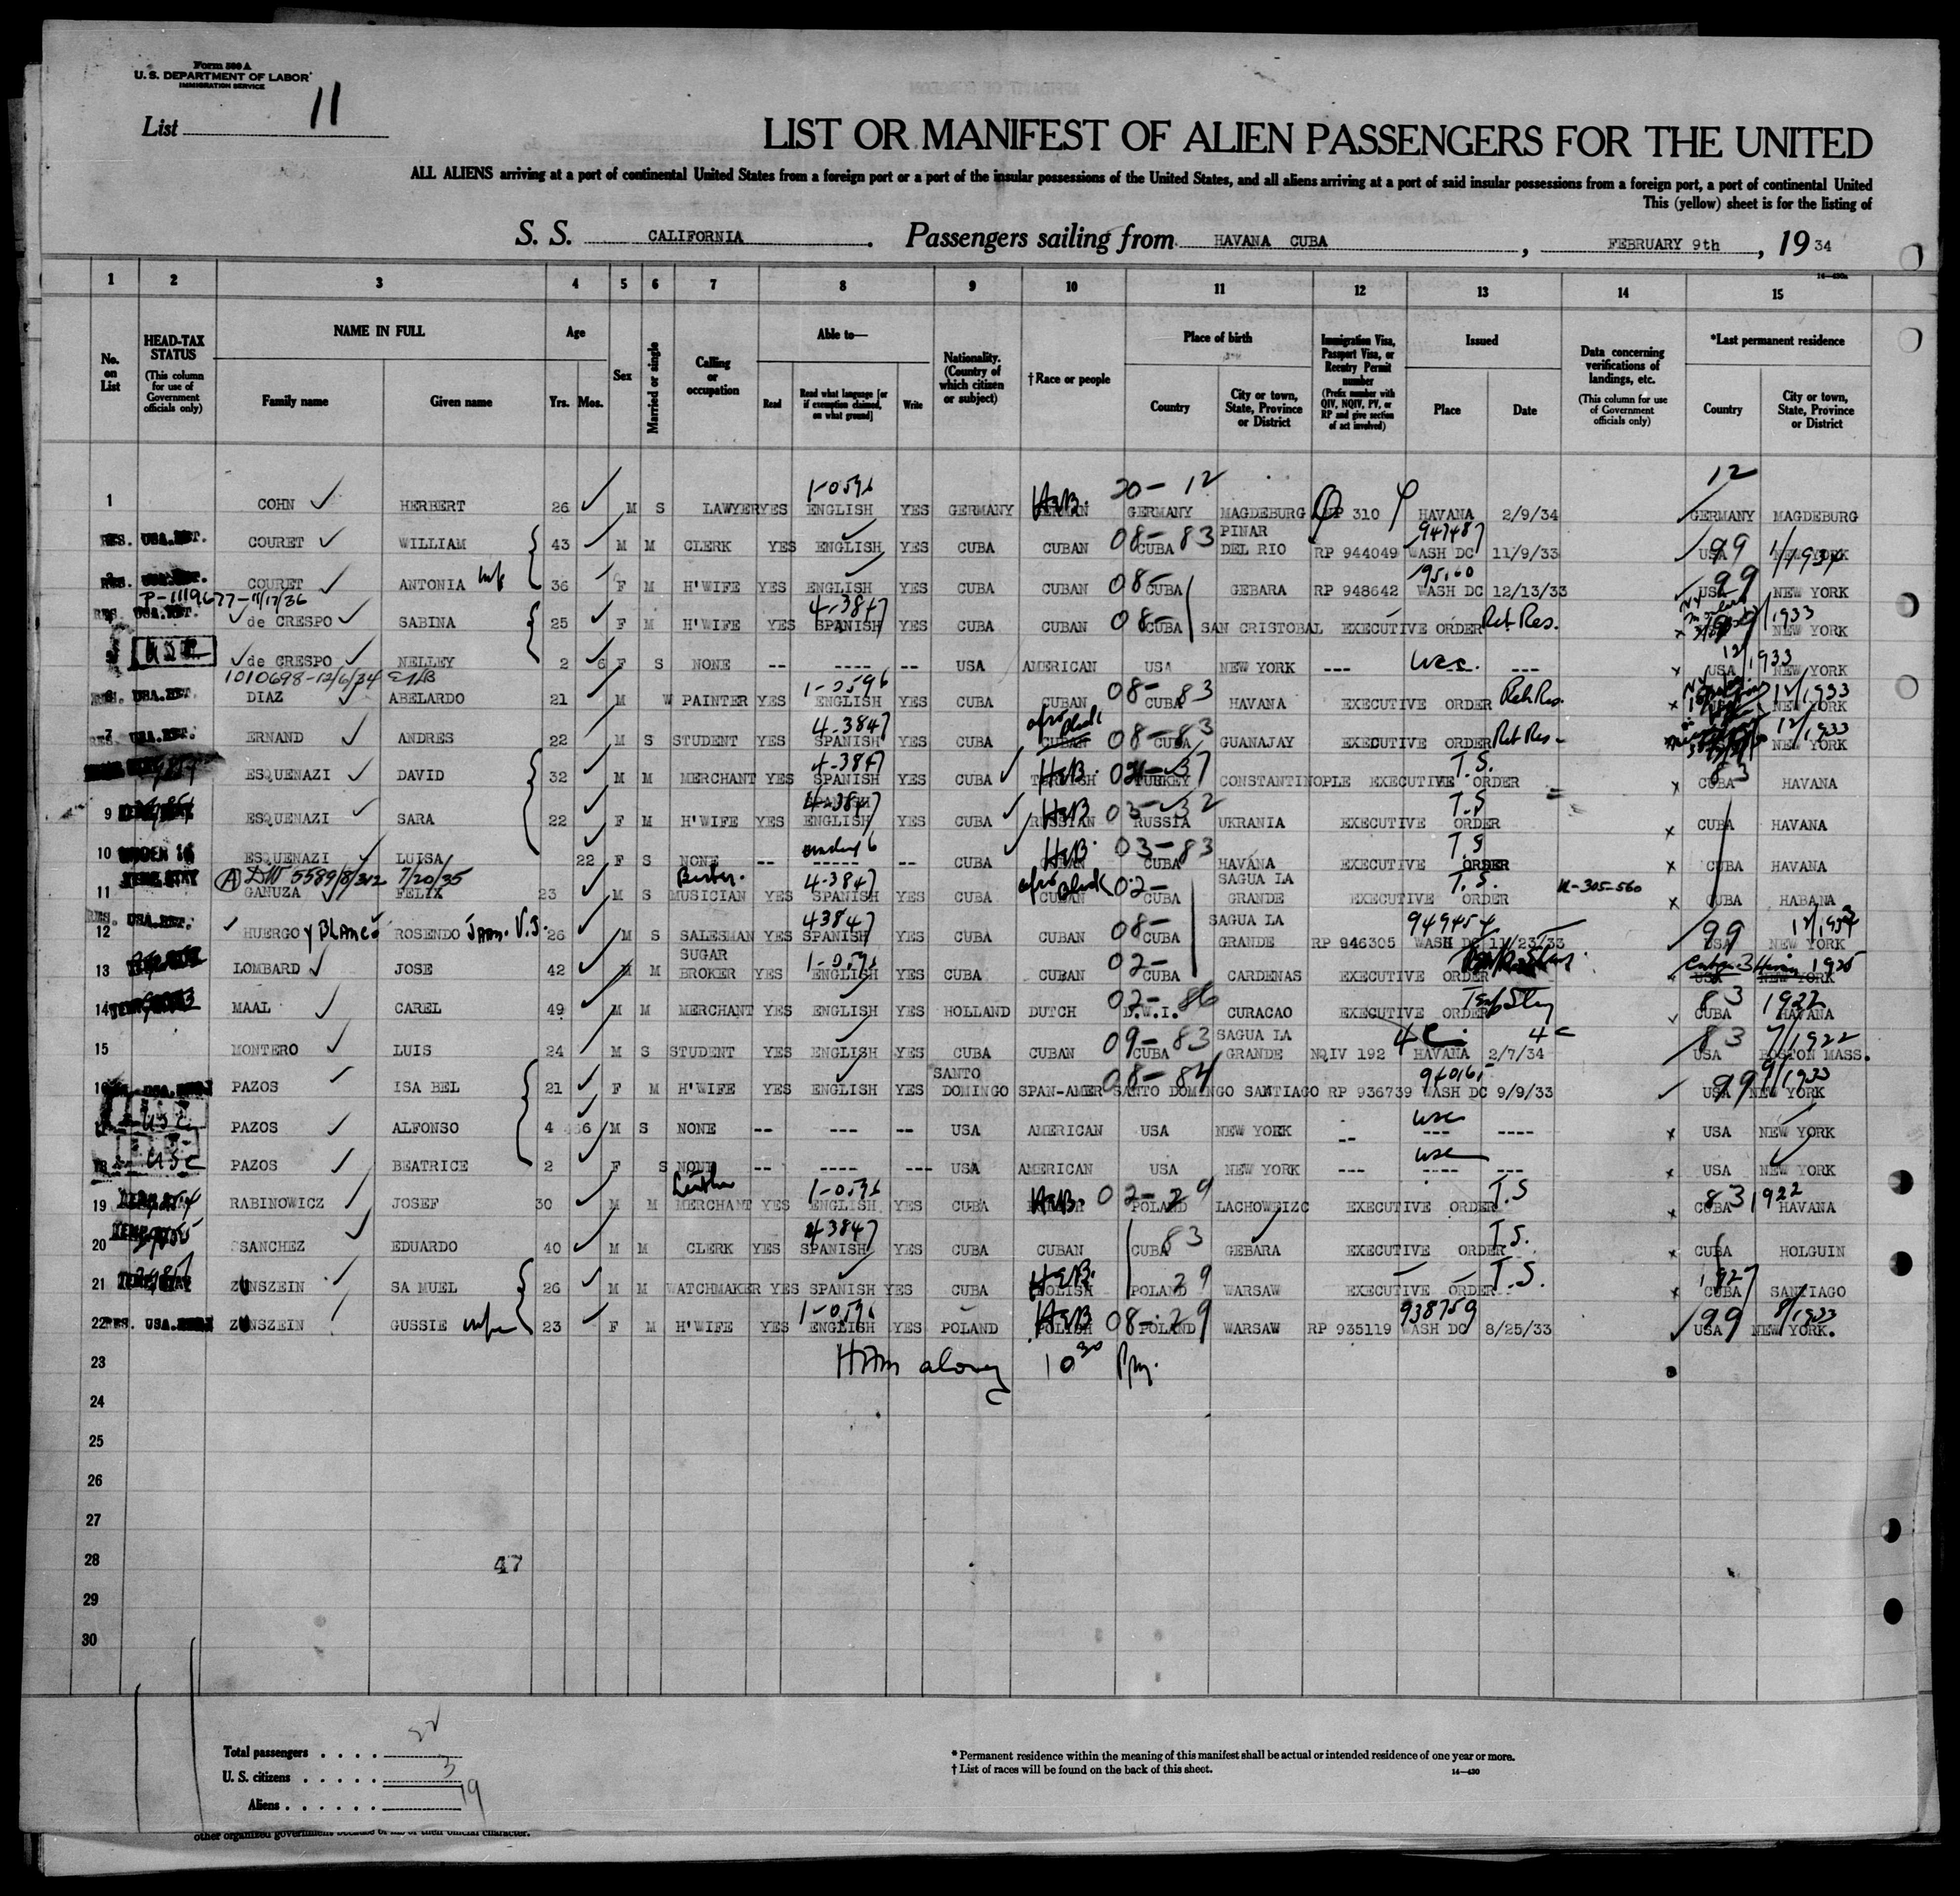 Form 500 A
U. S. DEPARTMENT OF LABOR
IMMIGRATION SERVICE
List 11
LIST OR MANIFEST OF ALIEN PASSENGERS FOR THE UNITED
ALL ALIENS arriving at a port of continental United States from a foreign port or a port of the insular possessions of the United States, and all aliens arriving at a port of said insular possessions from a foreign port, a port of continental United
This (yellow) sheet is for the listing of
S. S. CALIFORNIA. Passengers sailing from HAVANA CUBA, FEBRUARY 9th, 19 34
1 2 3 4 5 6 7 8 9 10 11 12 13 14 15
No. on List
HEAD-TAX STATUS (This column for use of Government officials only)
NAME IN FULL
Family name Given name
Age
Yrs. Mos.
Sex
Married or single
Calling or occupation
Able to—
Read
Read what language [or if exemption claimed, on what ground]
Write
Nationality. (Country of which citizen or subject)
†Race or people
Place of birth
Country
City or town, State, Province or District
Immigration Visa, Passport Visa, or Reentry Permit number (Prefix number with QIV, NQIV, PV, or RP and give section of act involved)
Issued
Place Date
Data concerning verifications of landings, etc. (This column for use of Government officials only)
*Last permanent residence
Country
City or town, State, Province or District
1-0596 20- 12 12
1 COHN HERBERT 26 M S LAWYER YES ENGLISH YES GERMANY HEB. GERMANY MAGDEBURG 310 HAVANA 2/9/34 GERMANY MAGDEBURG
RES. USA.RET. COURET WILLIAM 43 M M CLERK YES ENGLISH YES CUBA CUBAN 08- CUBA 83 PINAR DEL RIO RP 944049 947487 WASH DC 11/9/33 USA 99 NEW YORK
RES. USA.RET. COURET ANTONIA wife 36 F M H'WIFE YES ENGLISH YES CUBA CUBAN 08- CUBA GEBARA RP 948642 WASH DC 12/13/33 USA 99 NEW YORK
P-1119677-11/17/36
RES. USA.RET. de CRESPO SABINA 25 F M H'WIFE YES 4-3847 SPANISH YES CUBA CUBAN 08- CUBA SAN CRISTOBAL EXECUTIVE ORDER Ret Res. 1933 NEW YORK
USC de CRESPO NELLEY 2 6 F S NONE -- ---- -- USA AMERICAN USA NEW YORK --- usc. --- USA 12/1933 NEW YORK
1010698-12/6/34
RES. USA.RET. DIAZ ABELARDO 21 M W PAINTER YES 1-0596 ENGLISH YES CUBA CUBAN 08- CUBA 83 HAVANA EXECUTIVE ORDER Ret Res. 12/1933 NEW YORK
7 RES. USA.RET. ERNAND ANDRES 22 M S STUDENT YES 4-3847 SPANISH YES CUBA afro Black CUBAN 08-83 CUBA GUANAJAY EXECUTIVE ORDER Ret Res- 12/1933 NEW YORK
ESQUENAZI DAVID 32 M M MERCHANT YES 4-3847 SPANISH YES CUBA HEB. TURKEY CONSTANTINOPLE EXECUTIVE ORDER T.S. CUBA 83 HAVANA
9 ESQUENAZI SARA 22 F M H'WIFE YES SPANISH 4-3847 ENGLISH YES CUBA HEB RUSSIAN 03-32 RUSSIA UKRANIA EXECUTIVE ORDER T.S CUBA HAVANA
10 UNDER 16 ESQUENAZI LUISA 22 F S NONE -- under 16 ----- -- CUBA HEB. 03-83 CUBA HAVANA EXECUTIVE ORDER T.S CUBA HAVANA
5589/8/312 7/20/35
11 GANUZA FELIX 23 M S MUSICIAN YES 4-3847 SPANISH YES CUBA afro Black CUBAN 02- CUBA SAGUA LA GRANDE EXECUTIVE ORDER T.S. CUBA HABANA
12 RES. USA.RET. HUERGO y BLANCO ROSENDO 26 M S SALESMAN YES 43847 SPANISH YES CUBA CUBAN 08- CUBA SAGUA LA GRANDE RP 946305 949454 WASH DC 11/23/33 USA 99 NEW YORK
13 LOMBARD JOSE 42 M M SUGAR BROKER YES 1-0596 ENGLISH YES CUBA CUBAN 02- CUBA CARDENAS EXECUTIVE ORDER USA NEW YORK 1925
14 MAAL CAREL 49 M M MERCHANT YES ENGLISH YES HOLLAND DUTCH 02- 86 D.W.I. CURACAO EXECUTIVE ORDER Temp Stay CUBA 83 1922 HAVANA
15 MONTERO LUIS 24 M S STUDENT YES ENGLISH YES CUBA CUBAN 09- 83 CUBA SAGUA LA GRANDE NQIV 192 HAVANA 2/7/34 USA 83 7/1922 BOSTON MASS.
16 PAZOS ISA BEL 21 F M H'WIFE YES ENGLISH YES SANTO DOMINGO SPAN-AMER 08-84 SANTO DOMINGO SANTIAGO RP 936739 940165 WASH DC 9/9/33 USA 99 9/1933 NEW YORK
USC PAZOS ALFONSO 4 M S NONE -- --- -- USA AMERICAN USA NEW YORK -- usc --- ---- USA NEW YORK
18 USC PAZOS BEATRICE 2 F S NONE -- ---- --- USA AMERICAN USA NEW YORK --- usc ---- --- USA NEW YORK
19 RABINOWICZ JOSEF 30 M M Leather MERCHANT YES 1-0596 ENGLISH YES CUBA HEB. 02-29 POLAND LACHOWEIZC EXECUTIVE ORDER T.S CUBA 83 1922 HAVANA
20 SANCHEZ EDUARDO 40 M M CLERK YES 43847 SPANISH YES CUBA CUBAN CUBA 83 GEBARA EXECUTIVE ORDER T.S. CUBA HOLGUIN
21 ZUNSZEIN SA MUEL 26 M M WATCHMAKER YES SPANISH YES CUBA HEB. POLISH POLAND 29 WARSAW EXECUTIVE ORDER T.S. CUBA 1927 SANTIAGO
22 RES. USA. ZUNSZEIN GUSSIE wife 23 F M H'WIFE YES 1-0596 ENGLISH YES POLAND HEB POLISH 08-29 POLAND WARSAW RP 935119 938759 WASH DC 8/25/33 USA 99 8/1933 NEW YORK.
23
24
25
26
27
28 47
29
30
Total passengers . . . . 22
U. S. citizens . . . . . 3
Aliens . . . . . . 19
* Permanent residence within the meaning of this manifest shall be actual or intended residence of one year or more.
† List of races will be found on the back of this sheet.
14—430